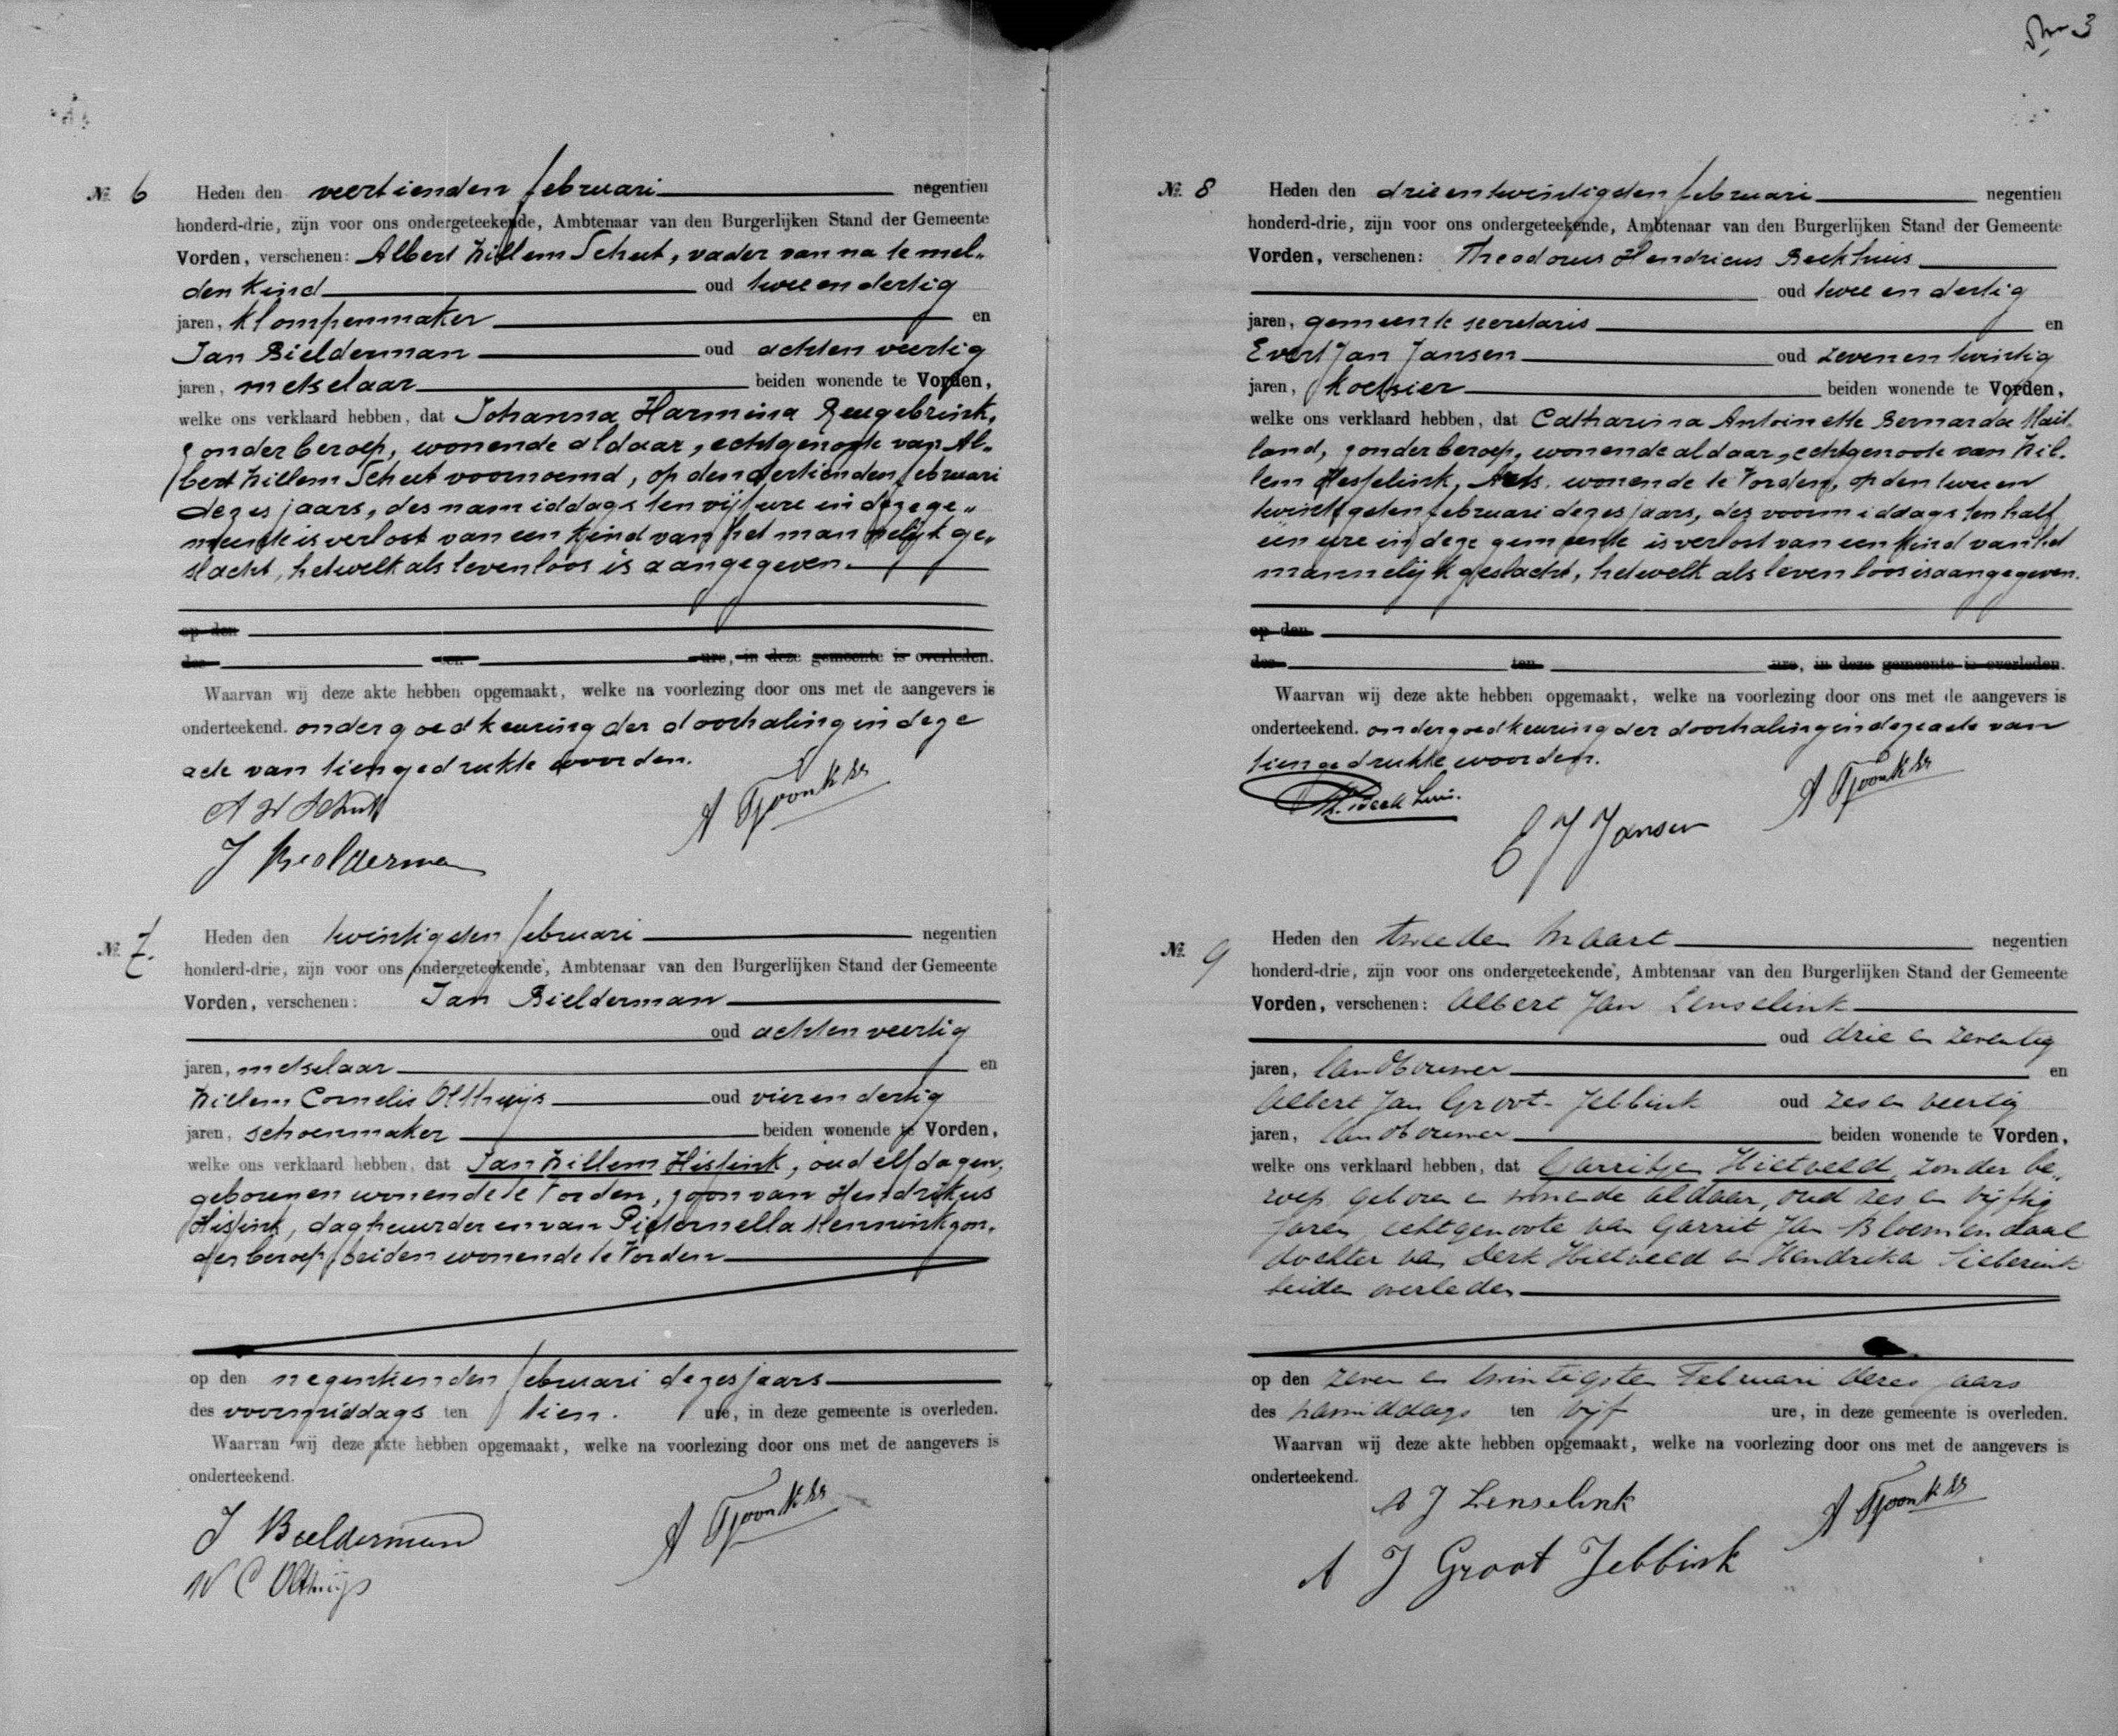 3
№ 6 Heden den veertienden februari negentien
honderd-drie, zijn voor ons ondergeteekende, Ambtenaar van den Burgerlijken Stand der Gemeente
Vorden, verschenen: Albert Willem Schut, vader van na te mel„
den kind oud twee en dertig
jaren, klompenmaker en
Jan Bielderman oud acht en veertig
jaren, metselaar beiden wonende te Vorden,
welke ons verklaard hebben, dat Johanna Harmina Reugebrink,
zonder beroep, wonende aldaar, echtgenoote van Al„
bert Willem Schut voornoemd, op den dertienden februari
dezes jaars, des namiddags ten vijf ure in deze ge„
meente is verlost van een kind van het mannelijk ge„
slacht, hetwelk als levenloos is aangegeven.
op den
des ten ure, in deze gemeente is overleden.
Waarvan wij deze akte hebben opgemaakt, welke na voorlezing door ons met de aangevers is
onderteekend. onder goedkeuring der doorhaling in deze
acte van tien gedrukte woorden.
A W Schut
J Bielderman
№ 7. Heden den twintigsten februari negentien
honderd-drie, zijn voor ons ondergeteekende, Ambtenaar van den Burgerlijken Stand der Gemeente
Vorden, verschenen: Jan Bielderman
oud acht en veertig
jaren, metselaar en
Willem Cornelis Olthuijs oud vier en dertig
jaren, schoenmaker beiden wonende te Vorden,
welke ons verklaard hebben, dat Jan Willem Hissink, oud elf dagen,
geboren en wonende te Vorden, zoon van Hendrikus
Hissink, daghuurder en van Pieternella Mennink zon„
der beroep beiden wonende te Vorden
op den negentienden februari dezes jaars
des voormiddags ten tien. ure, in deze gemeente is overleden.
Waarvan wij deze akte hebben opgemaakt, welke na voorlezing door ons met de aangevers is
onderteekend.
J Bielderman
W C Olthuijs
№ 8 Heden den drie en twintigsten februari negentien
honderd-drie, zijn voor ons ondergeteekende, Ambtenaar van den Burgerlijken Stand der Gemeente
Vorden, verschenen: Theodorus Hendricus Beekhuis
oud twee en dertig
jaren, gemeente secretaris en
Evert Jan Jansen oud zeven en twintig
jaren, koetsier beiden wonende te Vorden,
welke ons verklaard hebben, dat Catharina Antoinette Bernarda Mait„
land, zonder beroep, wonende aldaar, echtgenoote van Wil„
lem Hesselink, Arts. wonende te Vorden, op den twee en
twintigsten februari dezes jaars, des voormiddags ten half
een ure in deze gemeente is verlost van een kind van het
mannelijk geslacht, hetwelk als levenloos is aangegeven.
op den
des ten ure, in deze gemeente is overleden.
Waarvan wij deze akte hebben opgemaakt, welke na voorlezing door ons met de aangevers is
onderteekend. onder goedkeuring der doorhaling in deze acte van
tien gedrukte woorden.
Th. Beekhuis.
E J Jansen
№ 9 Heden den tweeden Maart negentien
honderd-drie, zijn voor ons ondergeteekende, Ambtenaar van den Burgerlijken Stand der Gemeente
Vorden, verschenen: Albert Jan Lenselink
oud drie en zeventig
jaren, landbouwer en
Albert Jan Groot Jebbink oud zes en veertig
jaren, landbouwer beiden wonende te Vorden,
welke ons verklaard hebben, dat Garritje Hietveld, zonder be„
roep geboren en wonende aldaar, oud zes en vijftig
jaren, echtgenoote van Garrit Jan Bloemendaal
dochter van Derk Hietveld en Hendrika
beiden overleden
op den zeven en twintigsten Februari dezes jaars
des namiddags ten vijf ure, in deze gemeente is overleden.
Waarvan wij deze akte hebben opgemaakt, welke na voorlezing door ons met de aangevers is
onderteekend.
A J Lenselink
A J Groot Jebbink